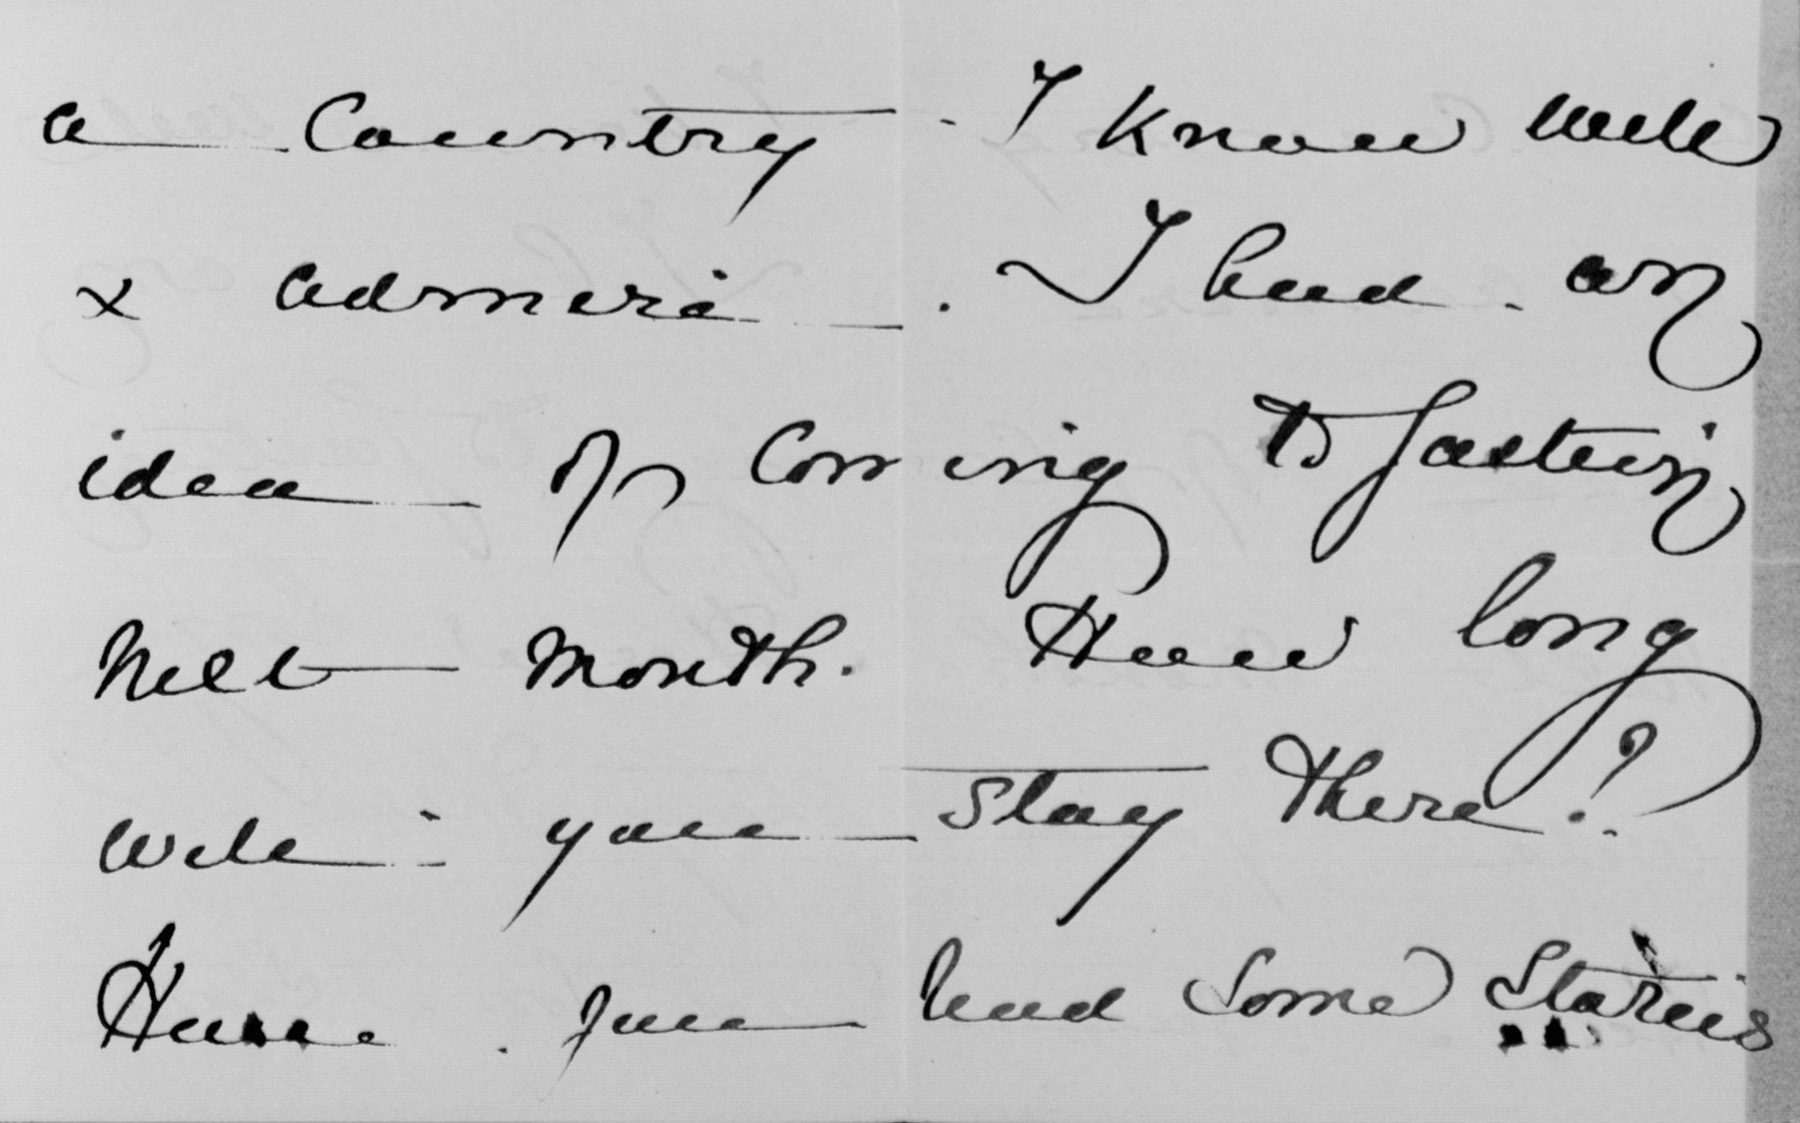 a Country . I know well
& admire . I had . an
idea of Coming to Gastein
next month. How long
will you stay there?
Have you had some Stories